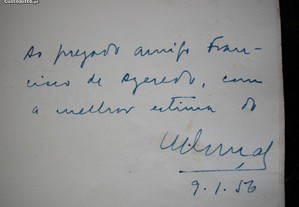 Ao prezado amigo Fran-
cisco de Azeredo, com
a melhor estima do
9.1.56